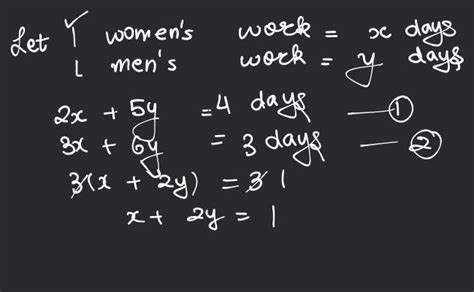 Let 1 women's work = x days
1 men's work = y days
2x + 5y = 4 days — ①
3x + 6y = 3 days — ②
3(x + 2y) = 3 1
x + 2y = 1